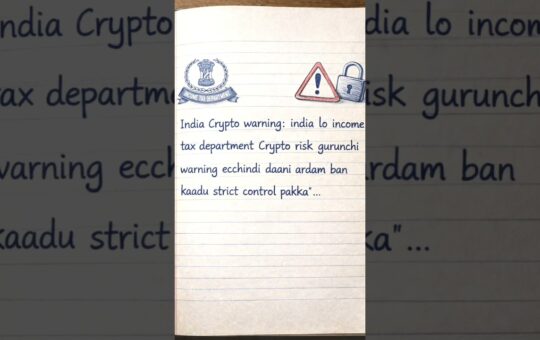 INCOME TAX DEPARTMENT
India Crypto warning: india lo income
tax department Crypto risk gurunchi
warning ecchindi daani ardam ban
kaadu strict control pakka"...